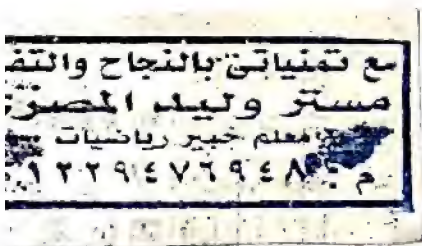 مع تمنياتى بالنجاح والتف
مستر وليد المصرى
معلم خبير رياضيات
م : ٠١٢٢٩٤٧٦٩٤٨